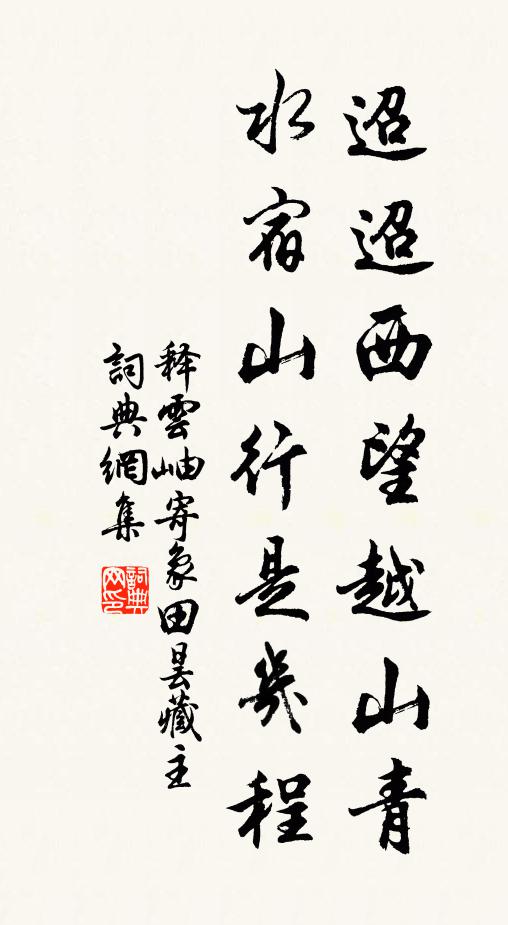 迢迢西望越山青
水宿山行是幾程
释雲岫寄象田曇藏主
詞典網集
詞典網印